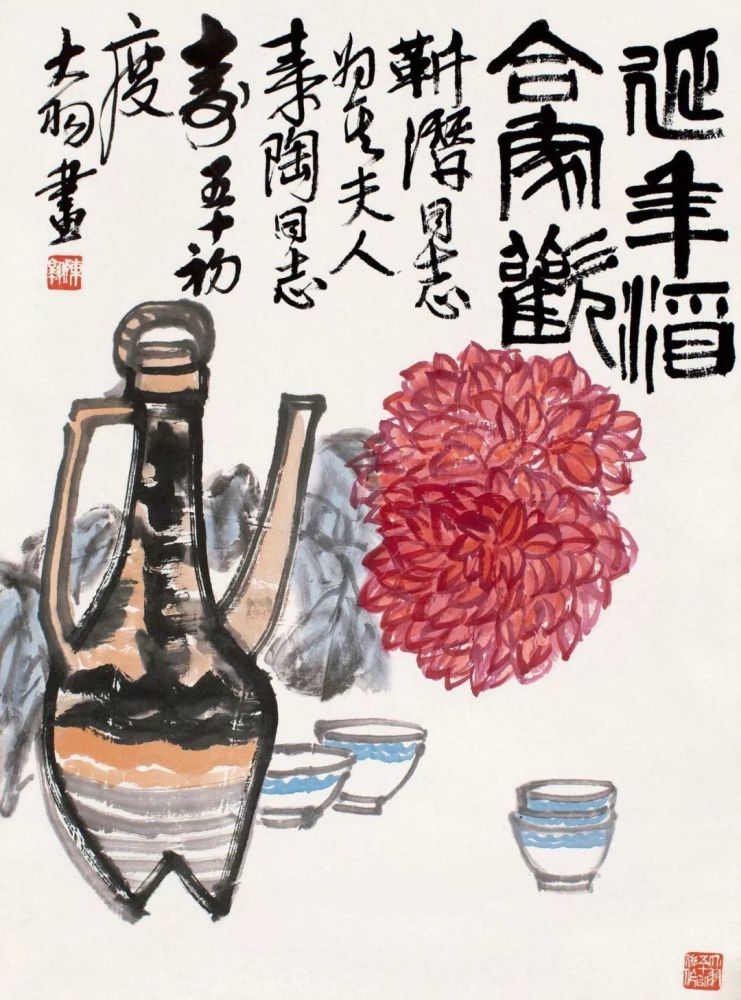 延年酒
合家歡
靳潛同志
为其夫人
素陶同志
壽五十初
度
大羽畫